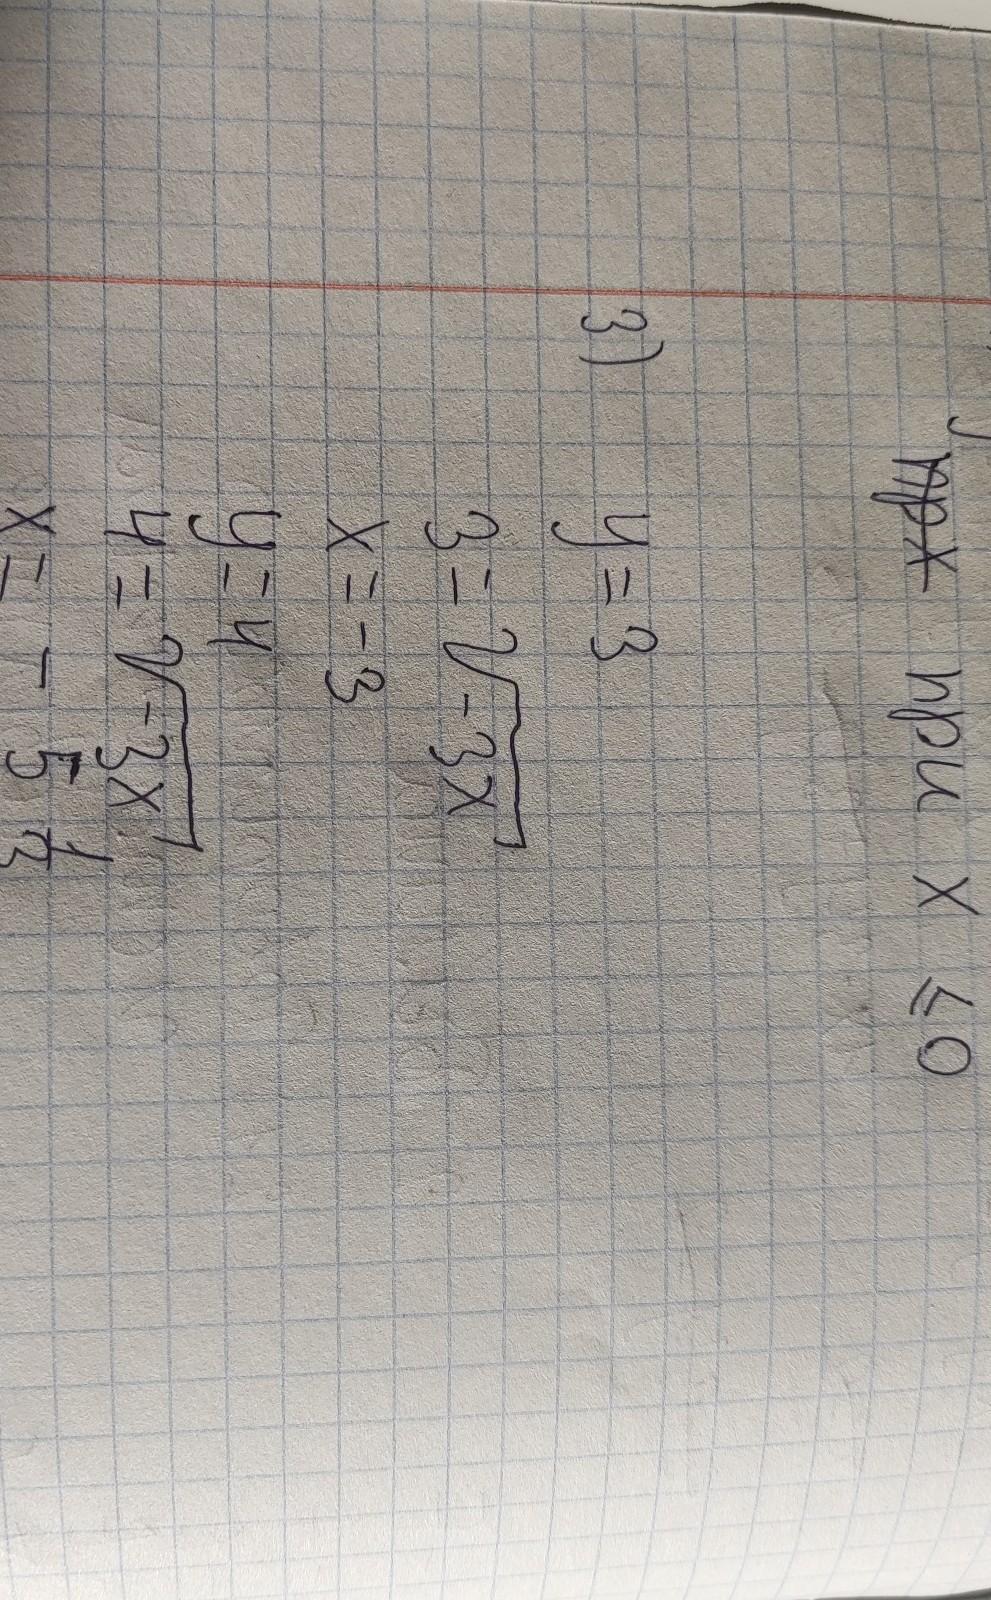 при x ≤ 0
3) y = 3
3 = √-3x
x = -3
y = 4
4 = √-3x
x = - 5 1/3